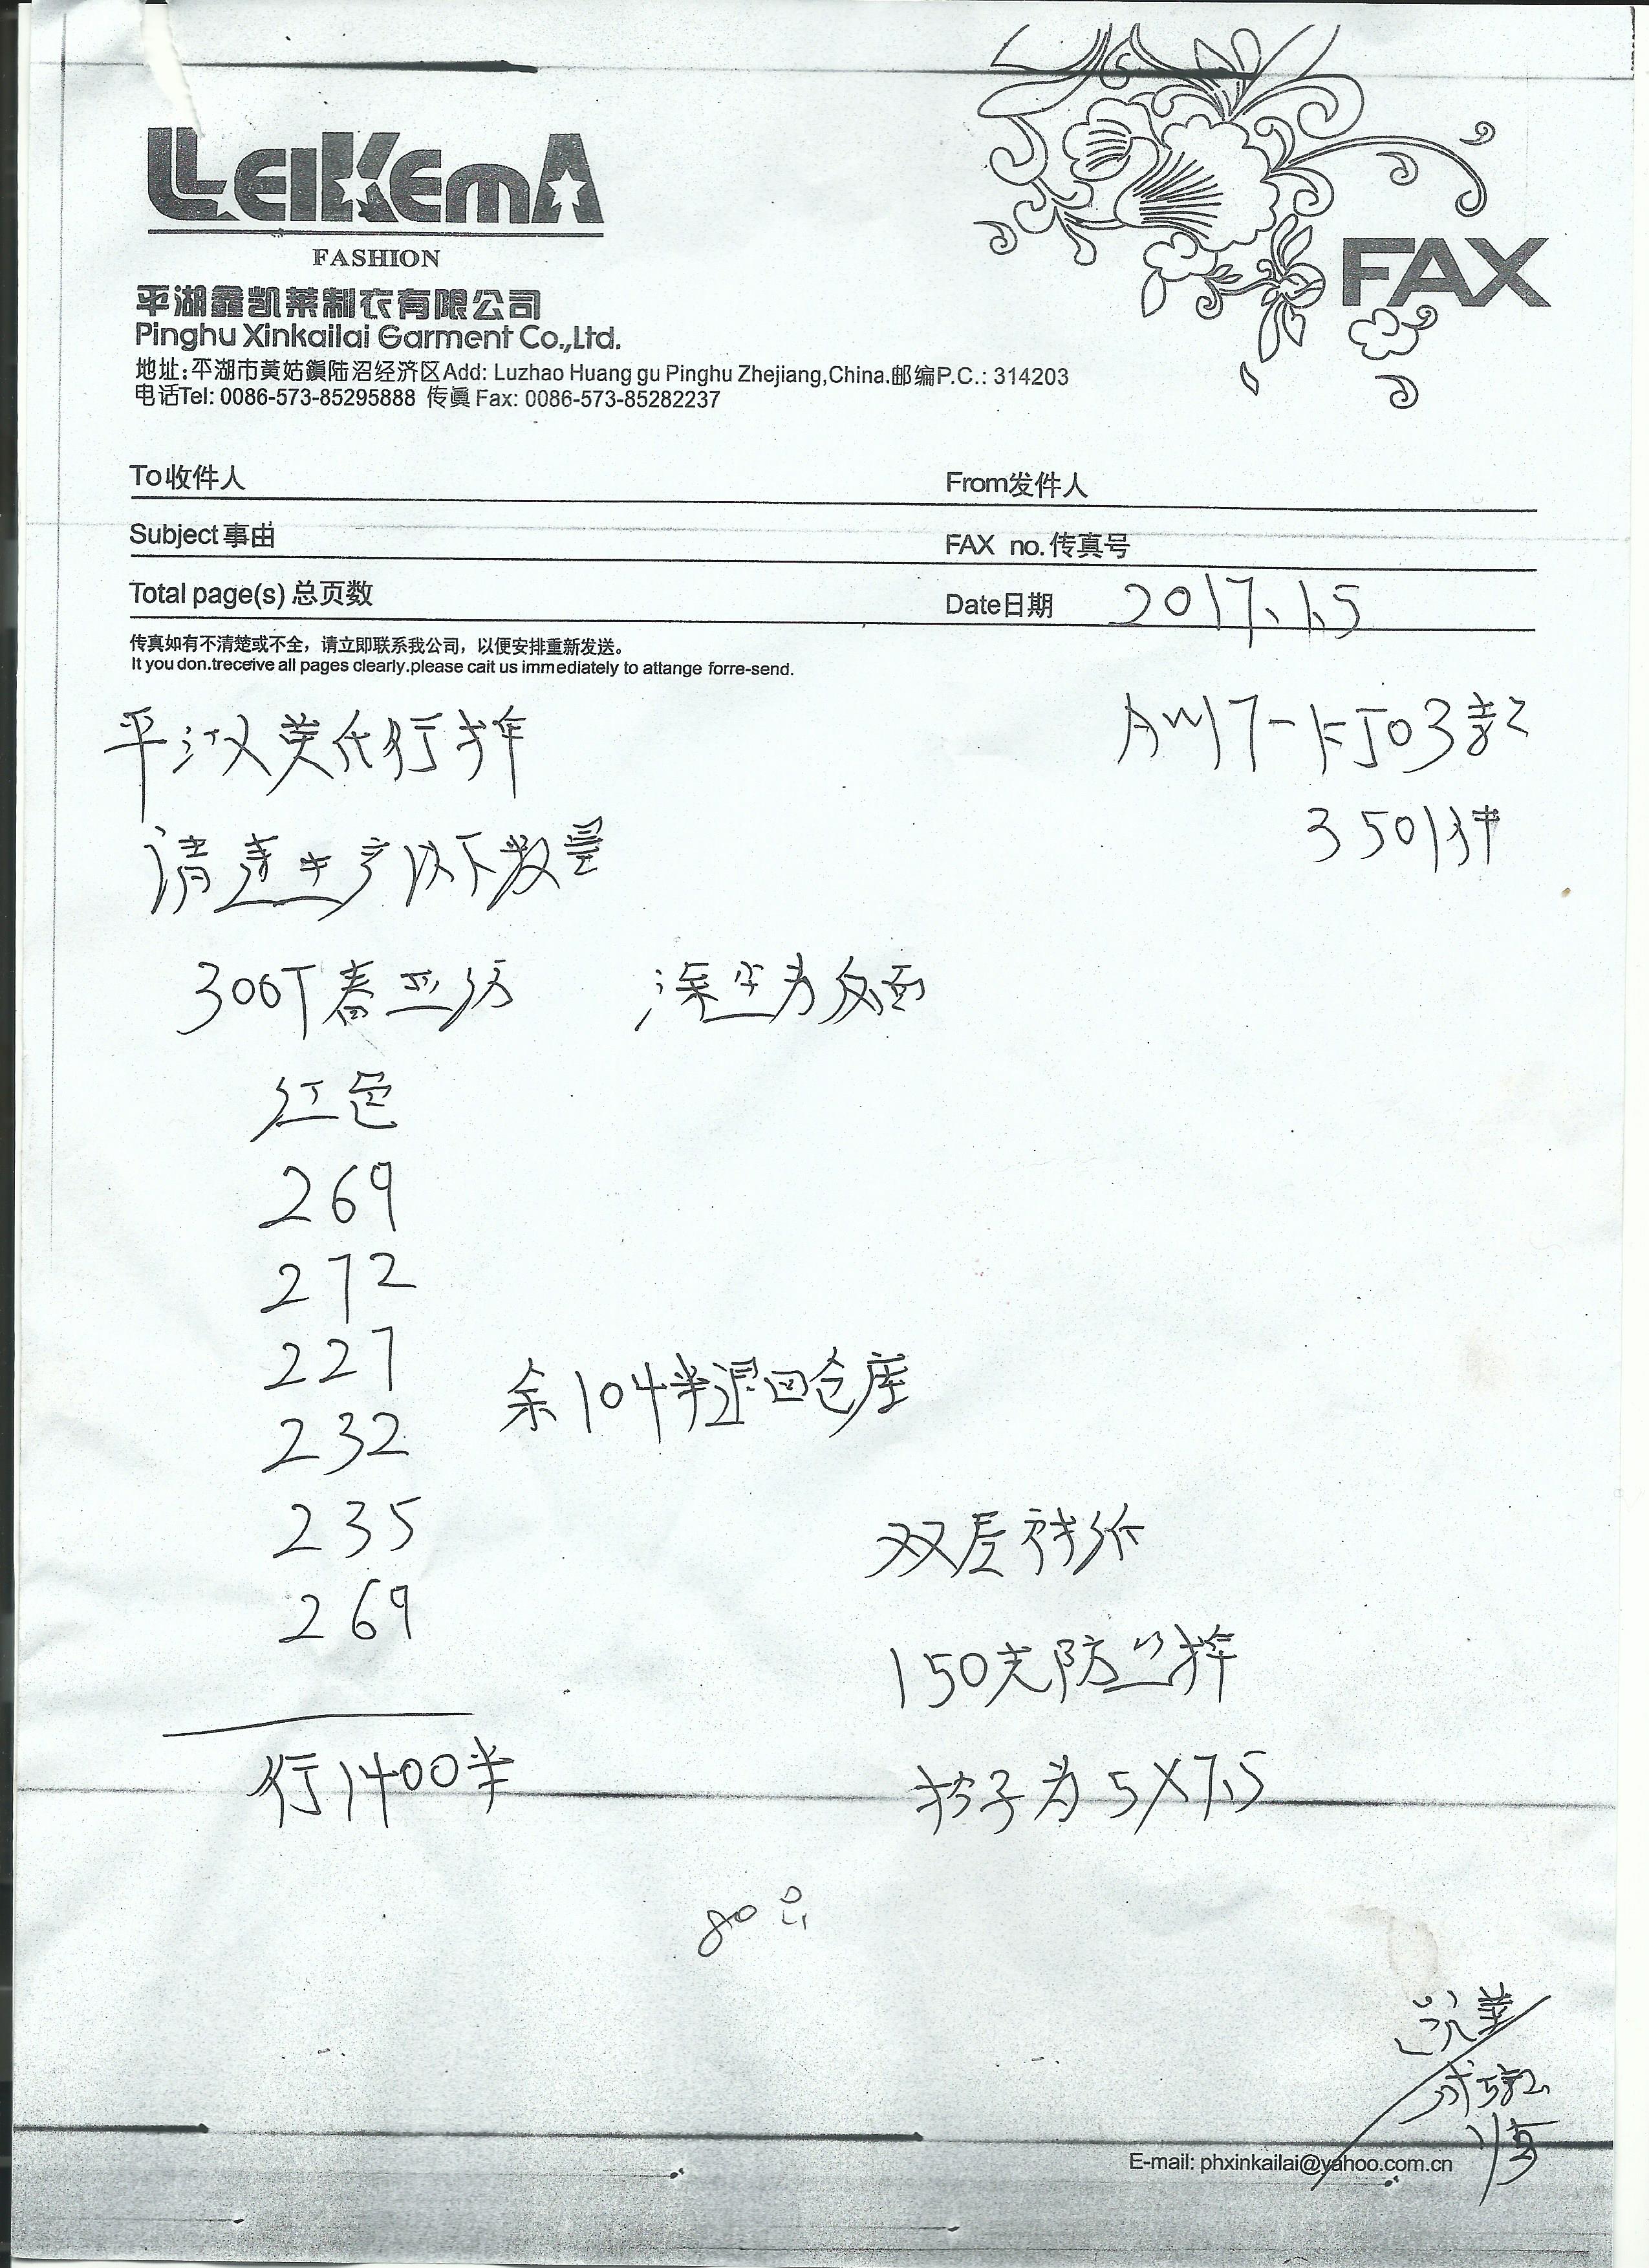 LEIKEMA
FASHION
FAX
平湖鑫凯莱制衣有限公司
Pinghu Xinkailai Garment Co.,Ltd.
地址:平湖市黄姑鎭陆沼经济区Add: Luzhao Huang gu Pinghu Zhejiang,China.邮编P.C.: 314203
电话Tel: 0086-573-85295888 传眞 Fax: 0086-573-85282237
To收件人 From发件人
Subject 事由 FAX no.传真号
Total page(s) 总页数 Date日期 2017.1.5
传真如有不清楚或不全，请立即联系我公司，以便安排重新发送。
It you don.treceive all pages clearly.please cait us immediately to attange forre-send.
AW17-KJ03款
350件
请速生产以下数量
300T春亚纺 深尘为反面
红色
269
272
227
余104米退回仓库
232
235
双层衬纱
269
150克防丝棉
行1400米
格子为5X7.5
80
1/5
E-mail: phxinkailai@yahoo.com.cn